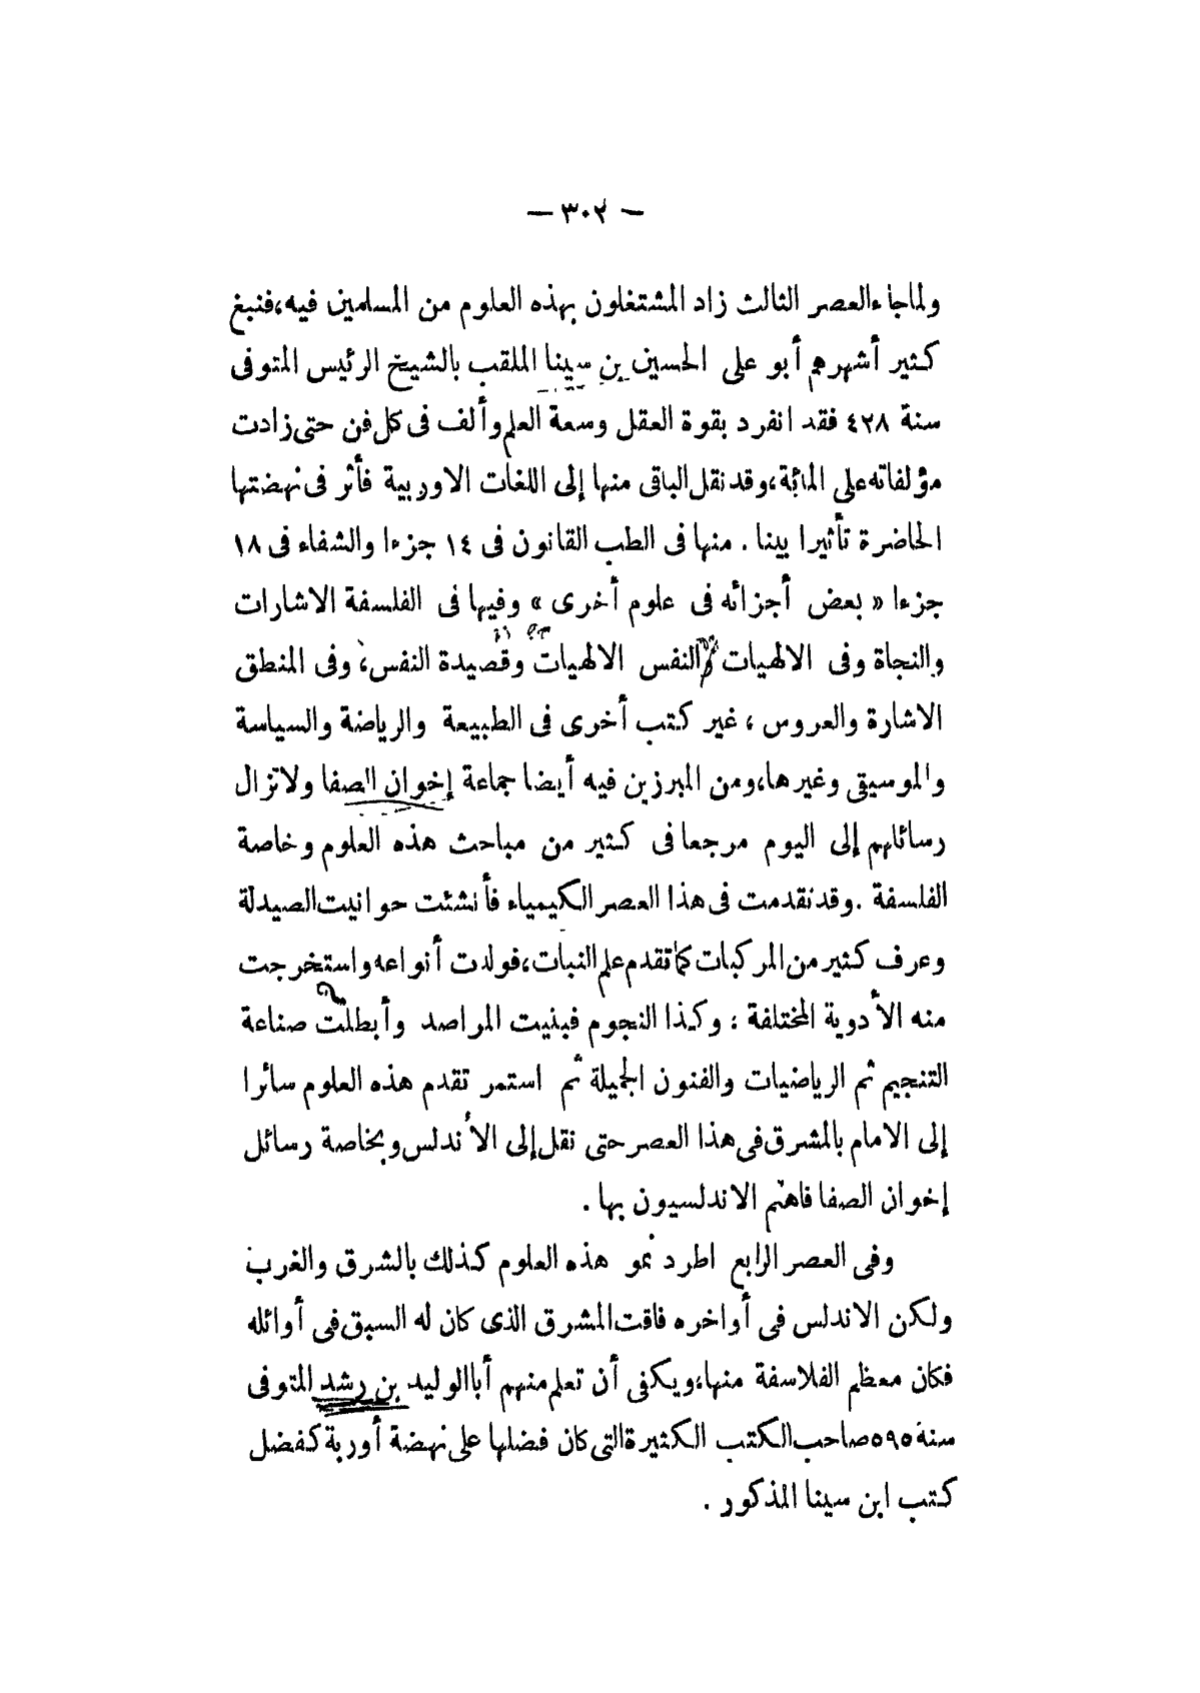 — ٣٠٢ —
ولما جاء العصر الثالث زاد المشتغلون بهذه العلوم من المسلمين فيه، فنبغ
كثير أشهرهم أبو على الحسين بن سينا الملقب بالشيخ الرئيس المتوفى
سنة ٤٢٨ فقد انفرد بقوة العقل وسعة العلم وألف فى كل فن حتى زادت
مؤلفاته على المائة، وقد نقل الباقى منها إلى اللغات الاوربية فأثر فى نهضتها
الحاضرة تأثيرا بينا . منها فى الطب القانون فى ١٤ جزءا والشفاء فى ١٨
جزءا « بعض أجزائه فى علوم أخرى » وفيها فى الفلسفة الاشارات
والنجاة وفى الالهيات والنفس الالهيات وقصيدة النفس، وفى المنطق
الاشارة والعروس ، غير كتب أخرى فى الطبيعة والرياضة والسياسة
والموسيقى وغيرها، ومن المبرزين فيه أيضا جماعة إخوان الصفا ولا تزال
رسائلهم إلى اليوم مرجعا فى كثير من مباحث هذه العلوم وخاصة
الفلسفة . وقد تقدمت فى هذا العصر الكيمياء فأنشئت حوانيت الصيدلة
وعرف كثير من المركبات كما تقدم علم النبات، فولدت أنواعه واستخرجت
منه الأدوية المختلفة ؛ وكذا النجوم فبنيت المراصد وأبطلت صناعة
التنجيم ثم الرياضيات والفنون الجميلة ثم استمر تقدم هذه العلوم سائرا
إلى الامام بالمشرق فى هذا العصر حتى نقل إلى الأندلس وبخاصة رسائل
إخوان الصفا فاهتم الاندلسيون بها .
وفى العصر الرابع اطرد نمو هذه العلوم كذلك بالشرق والغرب
ولكن الاندلس فى أواخره فاقت المشرق الذى كان له السبق فى أوائله
فكان معظم الفلاسفة منها، ويكفى أن تعلم منهم أبا الوليد بن رشد المتوفى
سنة ٥٩٥ صاحب الكتب الكثيرة التى كان فضلها على نهضة أوربة كفضل
كتب ابن سينا المذكور .